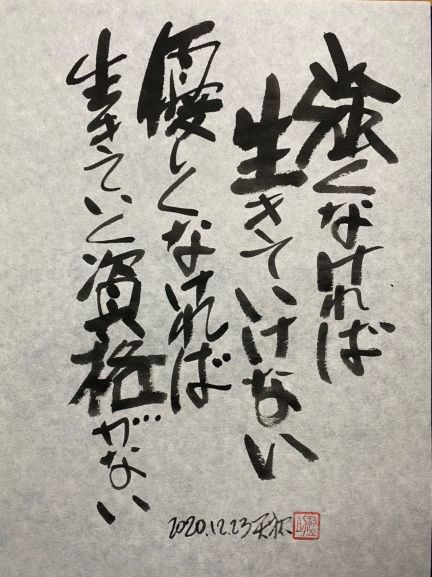 強くなければ
生きていけない
優しくなければ
生きていく資格がない
2020.12.23